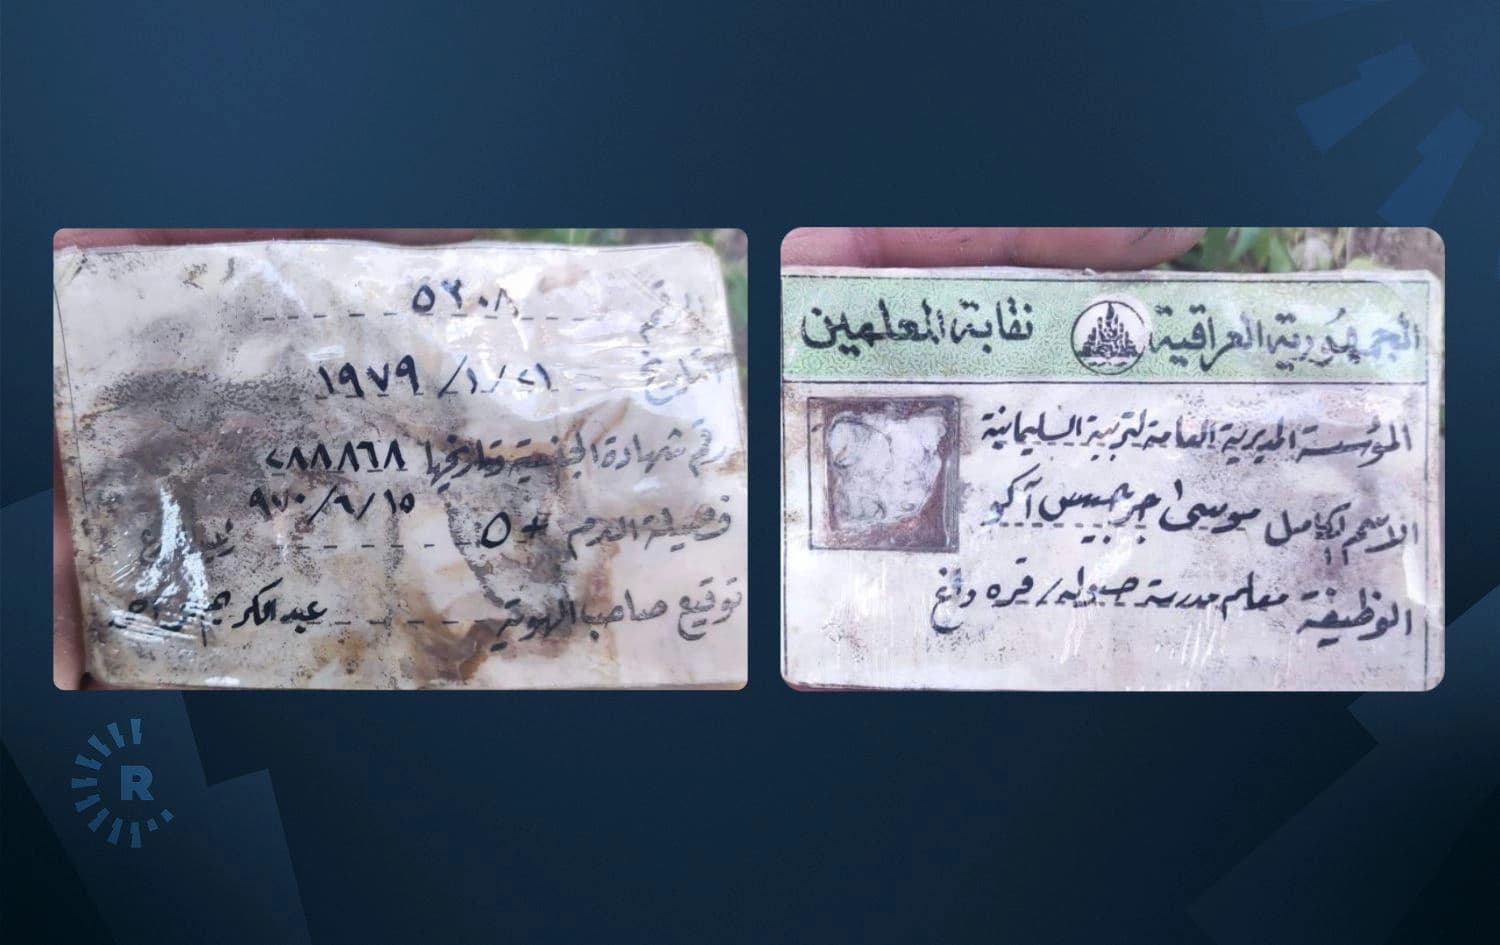 الرقم ٥٢٠٨
التاريخ ٢١/١/١٩٧٩
رقم شهادة الجنسية وتاريخها ٢٨٨٨٦٨
٩٧٠/٦/١٥
فصيلة الدم O +
توقيع صاحب الهوية عبدالكريم
الجمهورية العراقية نقابة المعلمين
المؤسسة المديرية العامة لتربية السليمانية
الاسم الكامل موسى جرجيس آكو
الوظيفة معلم مدرسة / قره داغ
R